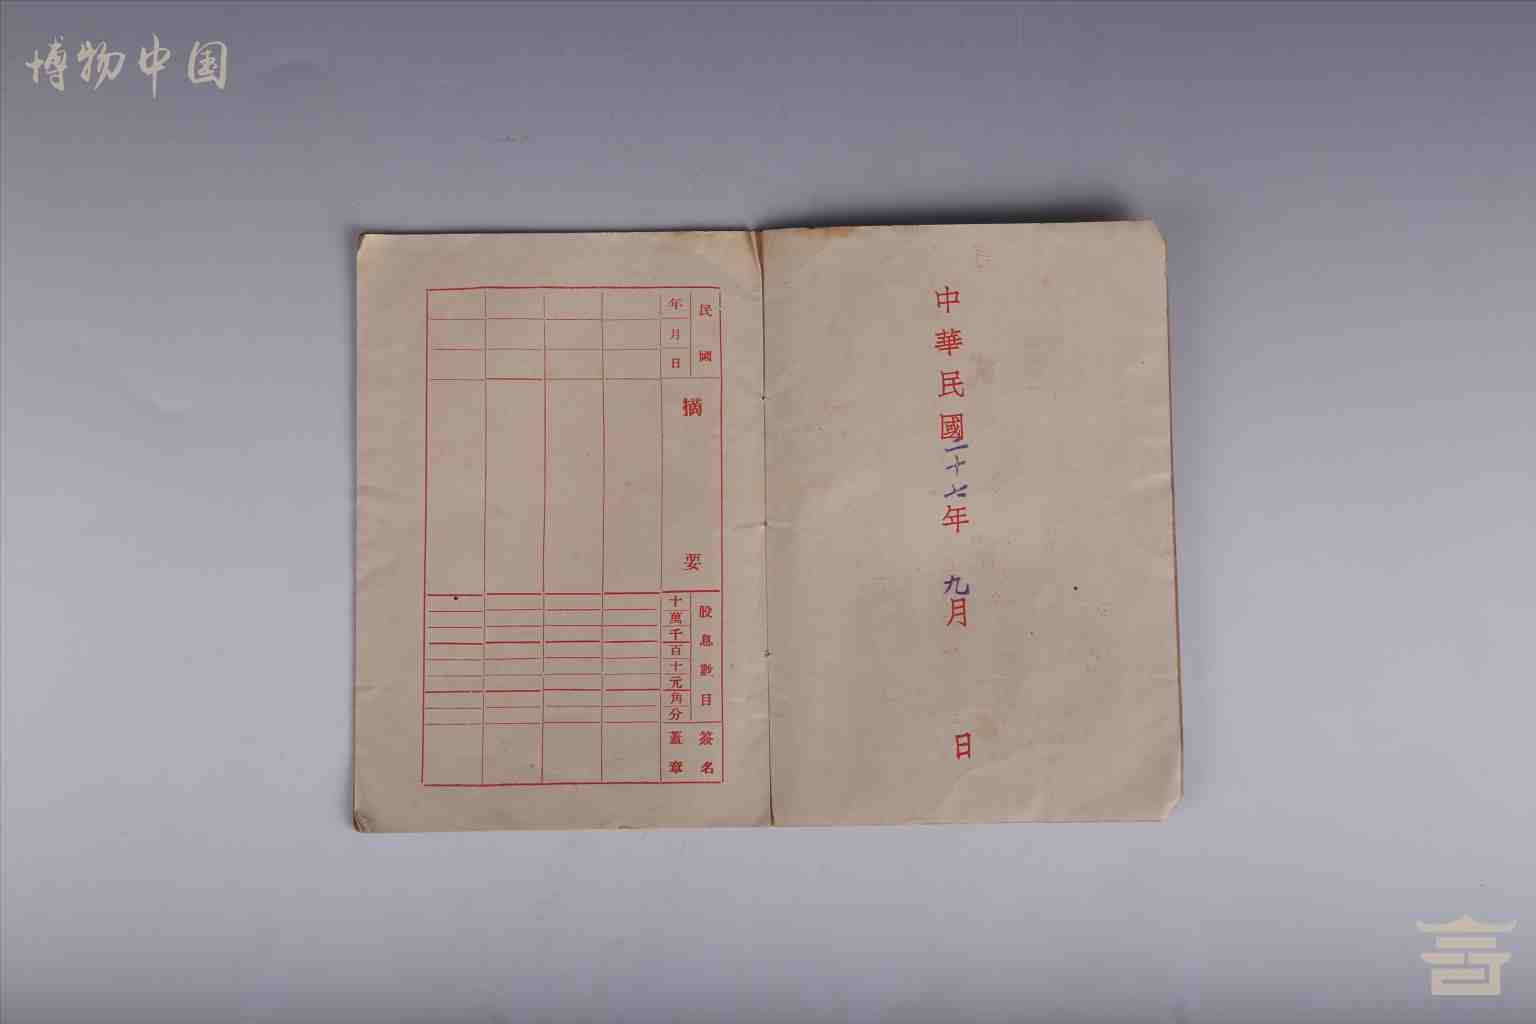 博物中国
中華民國二十七年 九月 日
民國
年月日
摘要
股息數目
十萬千百十元角分
簽名
蓋章